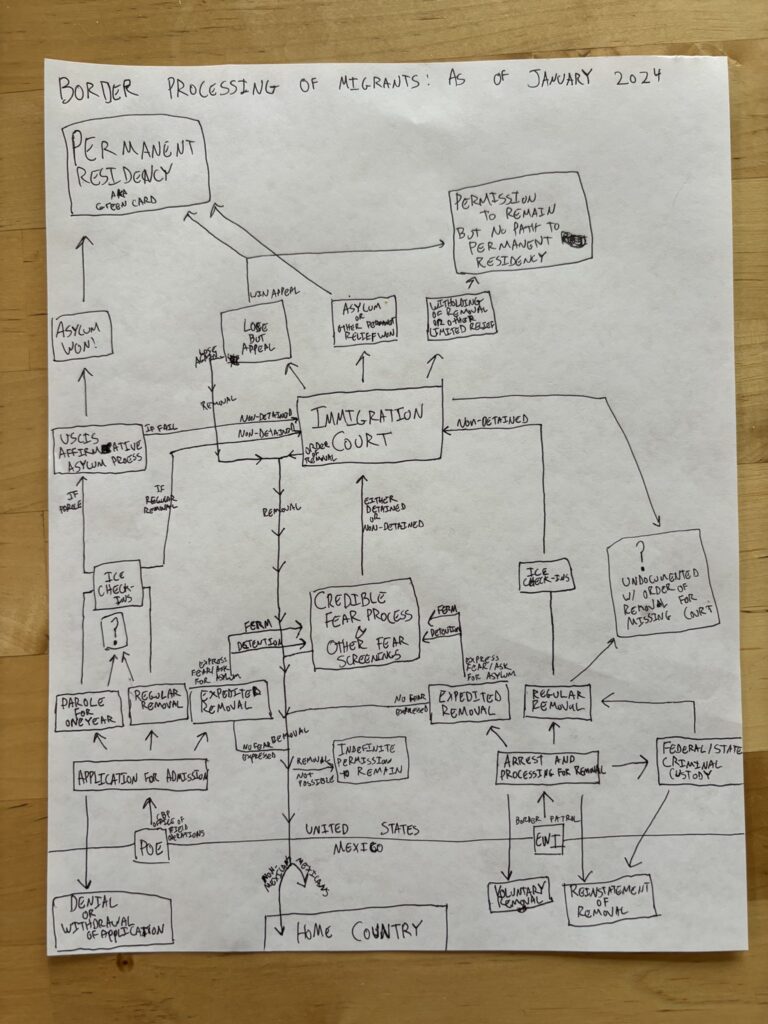 BORDER PROCESSING OF MIGRANTS: AS OF JANUARY 2024
PERMANENT
RESIDENCY
AKA
GREEN CARD
PERMISSION
TO REMAIN
BUT NO PATH TO
PERMANENT
RESIDENCY
WIN APPEAL
ASYLUM
WON!
LOSE
BUT
APPEAL
LOSE
APPEAL
ASYLUM
OR
OTHER
RELIEF WON
WITHOLDING
OF REMOVAL
OR OTHER
LIMITED RELIEF
REMOVAL
USCIS
AFFIRMATIVE
ASYLUM PROCESS
IF FAIL
NON-DETAINED
NON-DETAINED
IMMIGRATION
COURT
ORDER
OF
REMOVAL
NON-DETAINED
IF
PAROLE
IF
REGULAR
REMOVAL
REMOVAL
EITHER
DETAINED
OR
NON-DETAINED
ICE
CHECK-
INS
?
ICE
CHECK-INS
?
UNDOCUMENTED
W/ ORDER OF
REMOVAL FOR
MISSING COURT
CREDIBLE
FEAR PROCESS
&
OTHER FEAR
SCREENINGS
FERM
DETENTION
FERM
DETENTION
EXPRESS
FEAR/ASK
FOR ASYLUM
EXPRESS
FEAR/ASK
FOR ASYLUM
PAROLE
FOR
ONE YEAR
REGULAR
REMOVAL
EXPEDITED
REMOVAL
NO FEAR
EXPRESSED
EXPEDITED
REMOVAL
REGULAR
REMOVAL
NO FEAR
EXPRESSED
REMOVAL
REMOVAL
NOT
POSSIBLE
INDEFINITE
PERMISSION
TO REMAIN
APPLICATION FOR ADMISSION
ARREST AND
PROCESSING FOR REMOVAL
FEDERAL/STATE
CRIMINAL
CUSTODY
POE
CBP
OFFICE OF
FIELD
OPERATIONS
UNITED STATES
MEXICO
BORDER PATROL
EWI
NON-
MEXICANS
MEXICANS
DENIAL
OR
WITHDRAWAL
OF APPLICATION
HOME COUNTRY
VOLUNTARY
REMOVAL
REINSTATEMENT
OF
REMOVAL